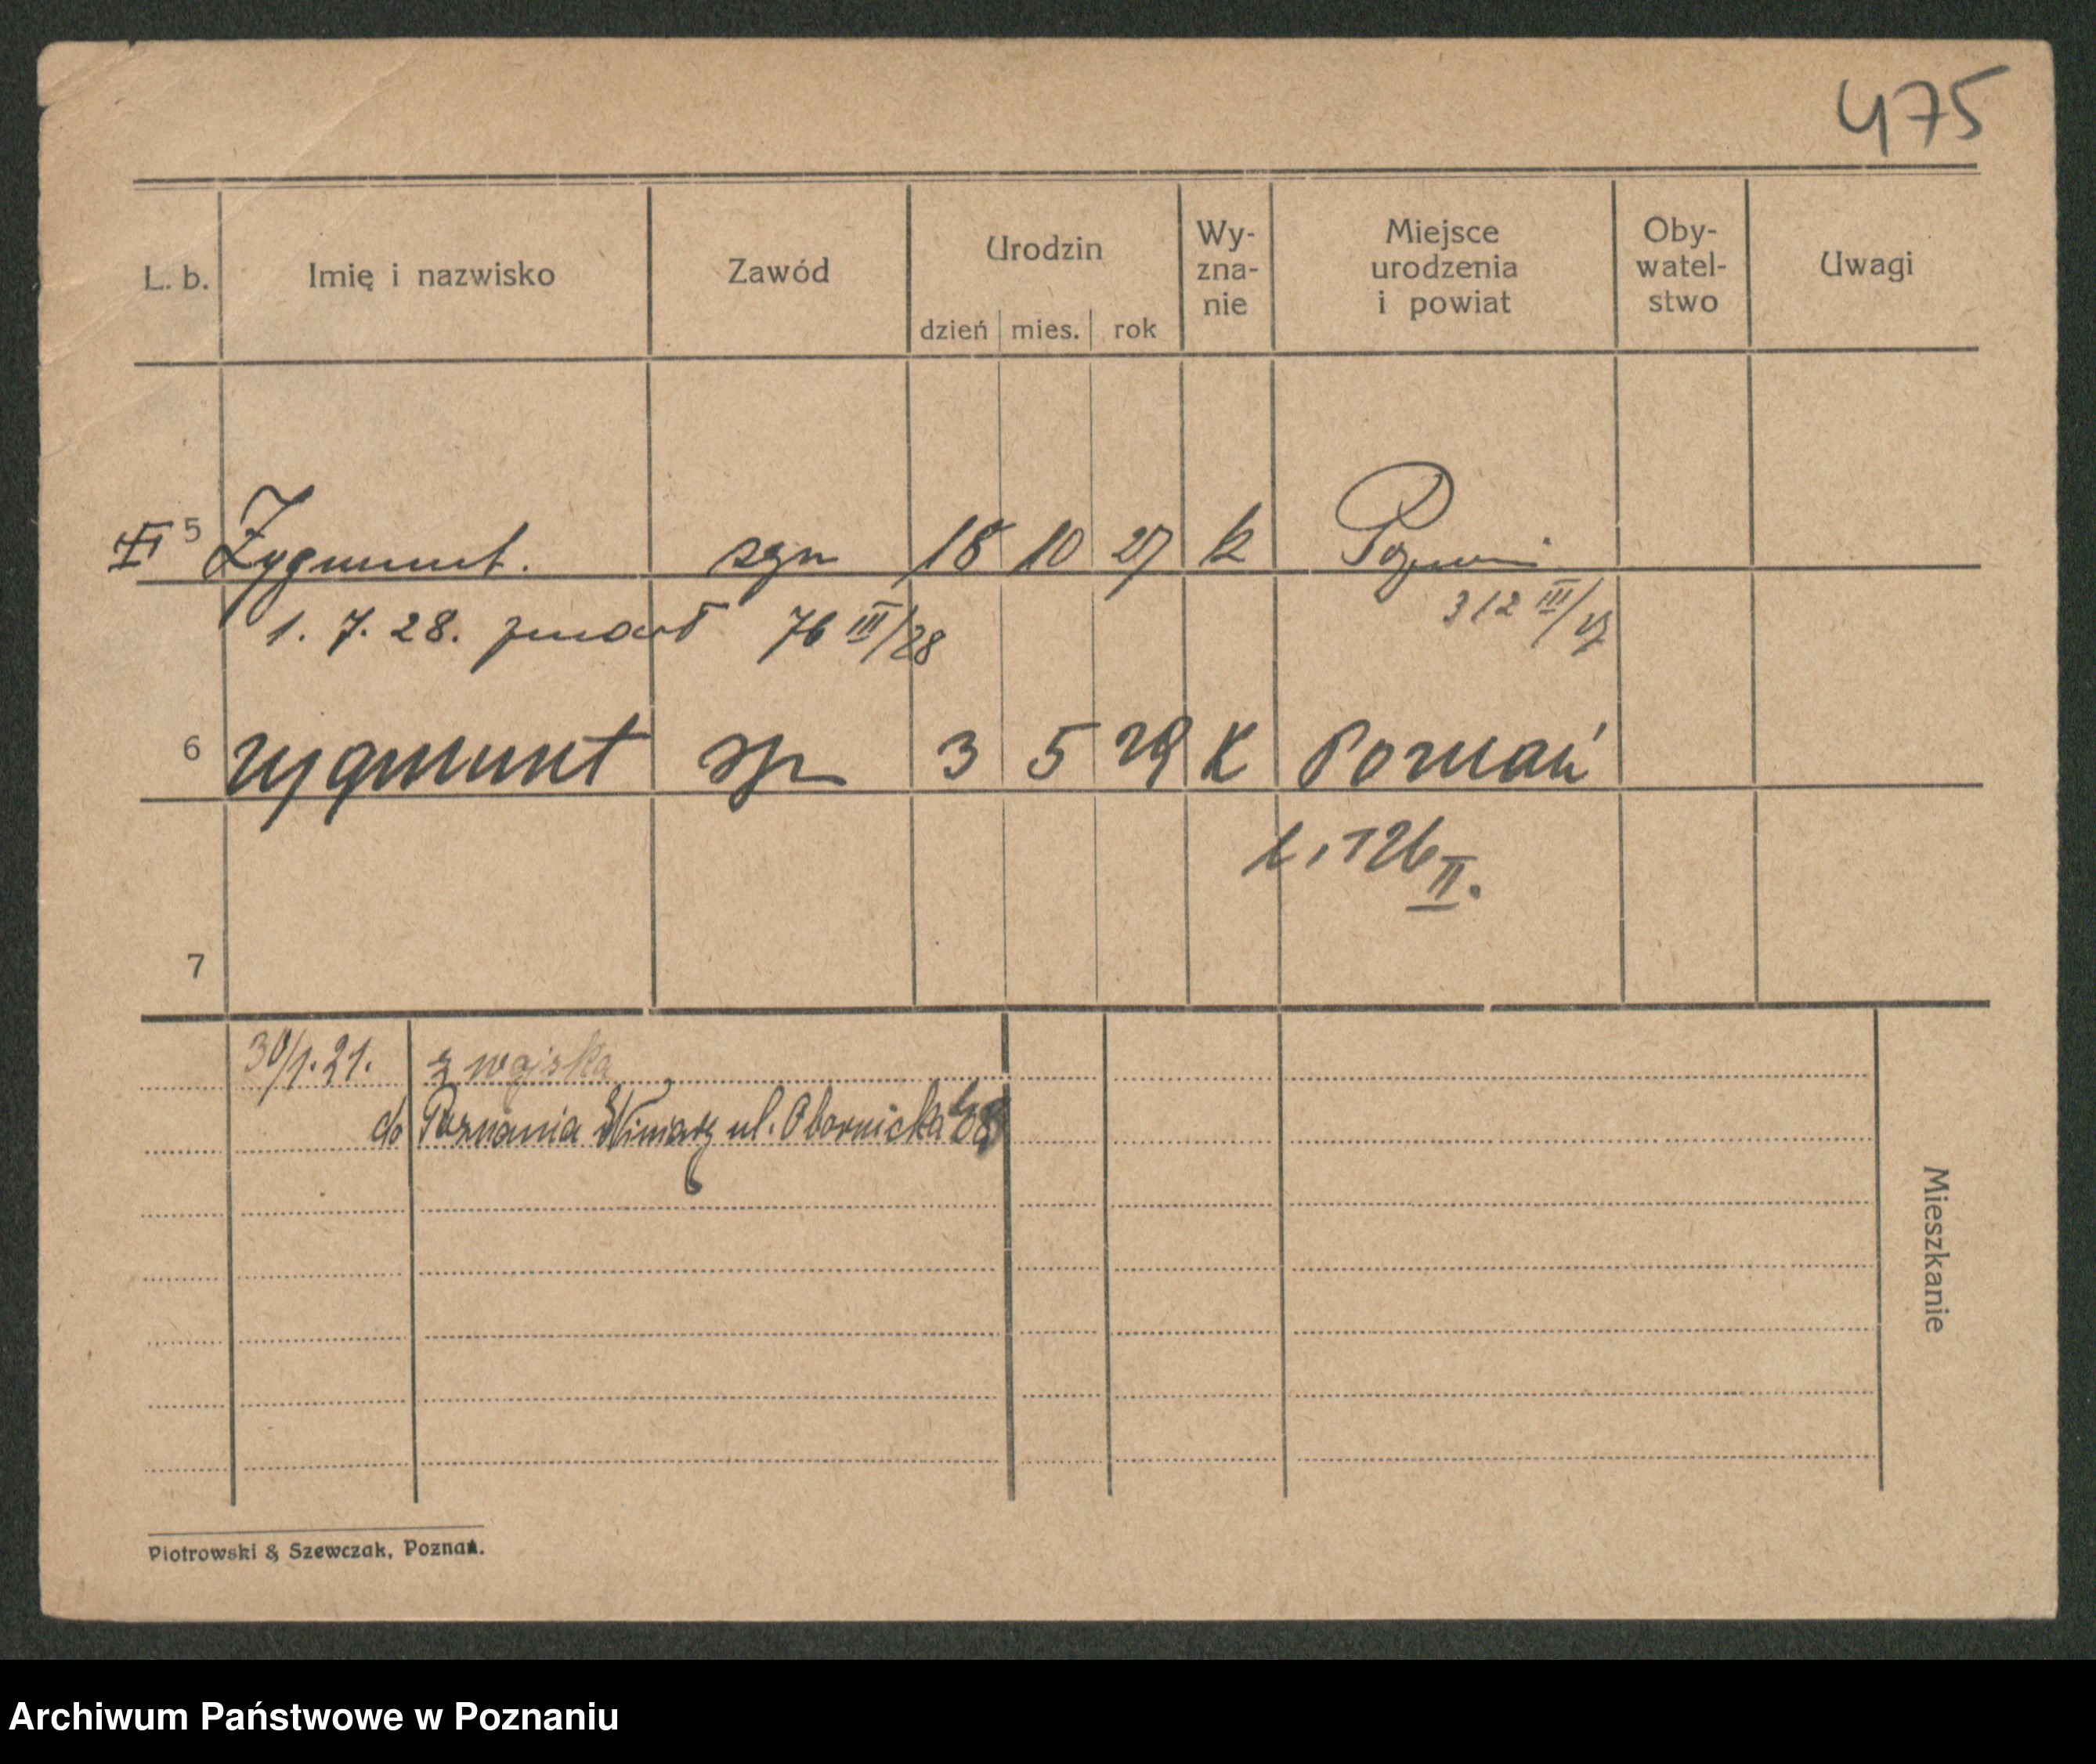 475
L. b. Imię i nazwisko Zawód Urodzin dzień mies. rok Wy-zna-nie Miejsce urodzenia i powiat Oby-watel-stwo Uwagi
5 Zygmunt. syn 18 10 27 k Poznań
312 III/27
1. 7. 28. zmarł 76 III/28
6 Zygmunt syn 3 5 29 K Poznań
126 II.
7
30/1.21. z wojska
do Poznania Winiary ul. Obornicka
Mieszkanie
Piotrowski & Szewczak, Poznań.
Archiwum Państwowe w Poznaniu